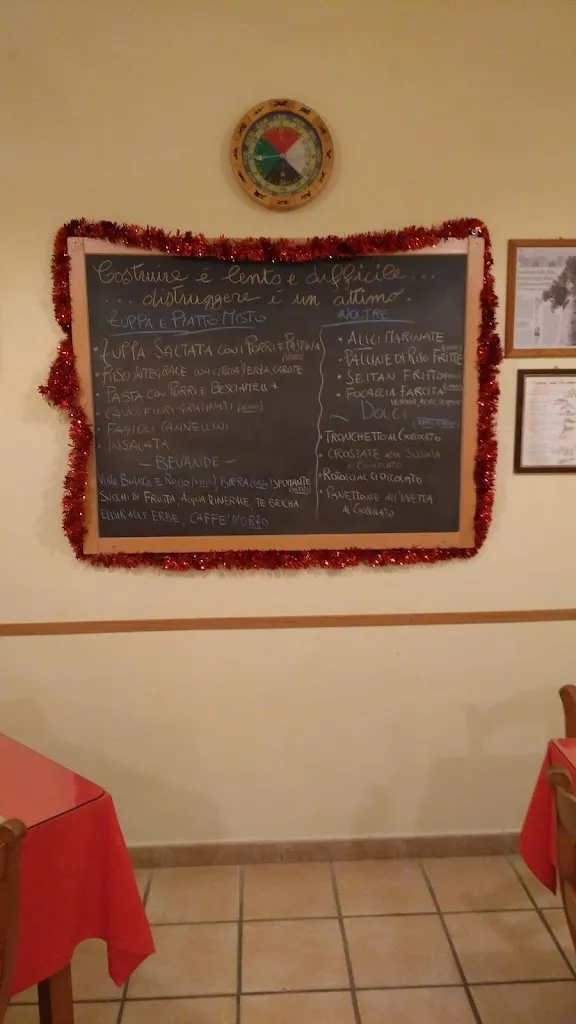 Costruire è lento e difficile...
... distruggere è un attimo.
ZUPPA E PIATTO MISTO
• ZUPPA SALTATA CON I PORRI E PASTINA
• RISO INTEGRALE CON CICCIA VERZA, CAROTE
• PASTA CON PORRI E BESCIAMELLA
• CAVOLFIORI GRATINATI
• FAGIOLI CANNELLINI
• INSALATA
— BEVANDE —
VINO BIANCO E ROSSO BIRRA SPUMANTE
SUCCHI DI FRUTTA, ACQUA MINERALE, TE BANCHA
ELISIR ALLE ERBE, CAFFE' D'ORZO
INOLTRE
• ALICI MARINATE
• PALLINE DI RISO FRITTE
• SEITAN FRITTO
• FOCACCIA FARCITA
DOLCI
• TRONCHETTO AL CIOCCOLATO
• CROSTATE
AL CIOCCOLATO
• ROTOLO AL CIOCCOLATO
• PANETTONE ALL'UVETTA
AL CIOCCOLATO